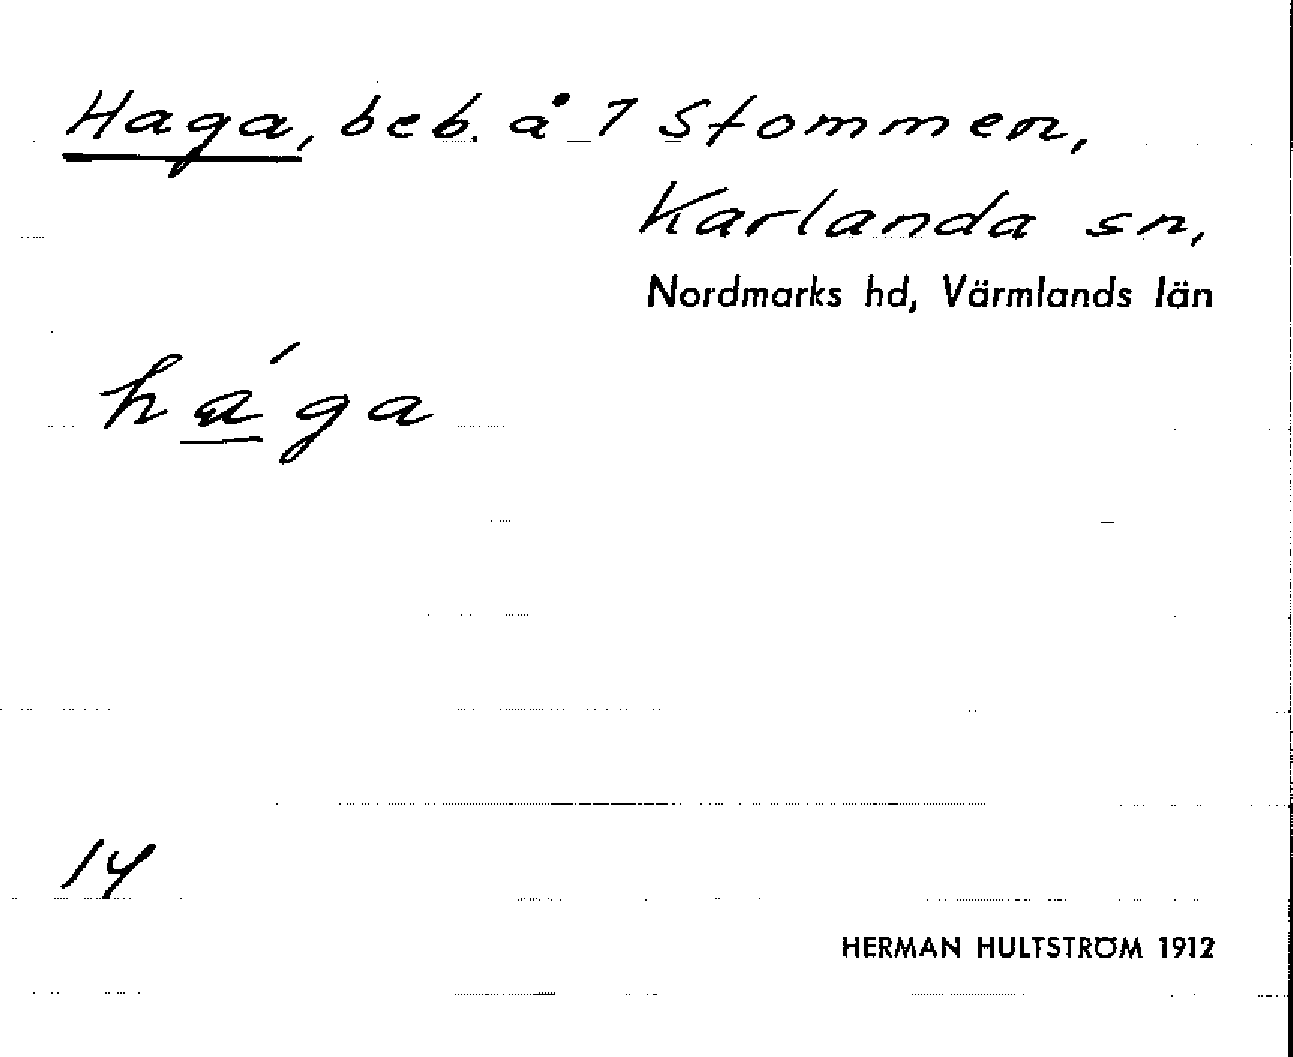 Haga, beb. å 1 Stommen,
Karlanda sn,
Nordmarks hd, Värmlands län
há̱ga
14
HERMAN HULTSTRÖM 1912